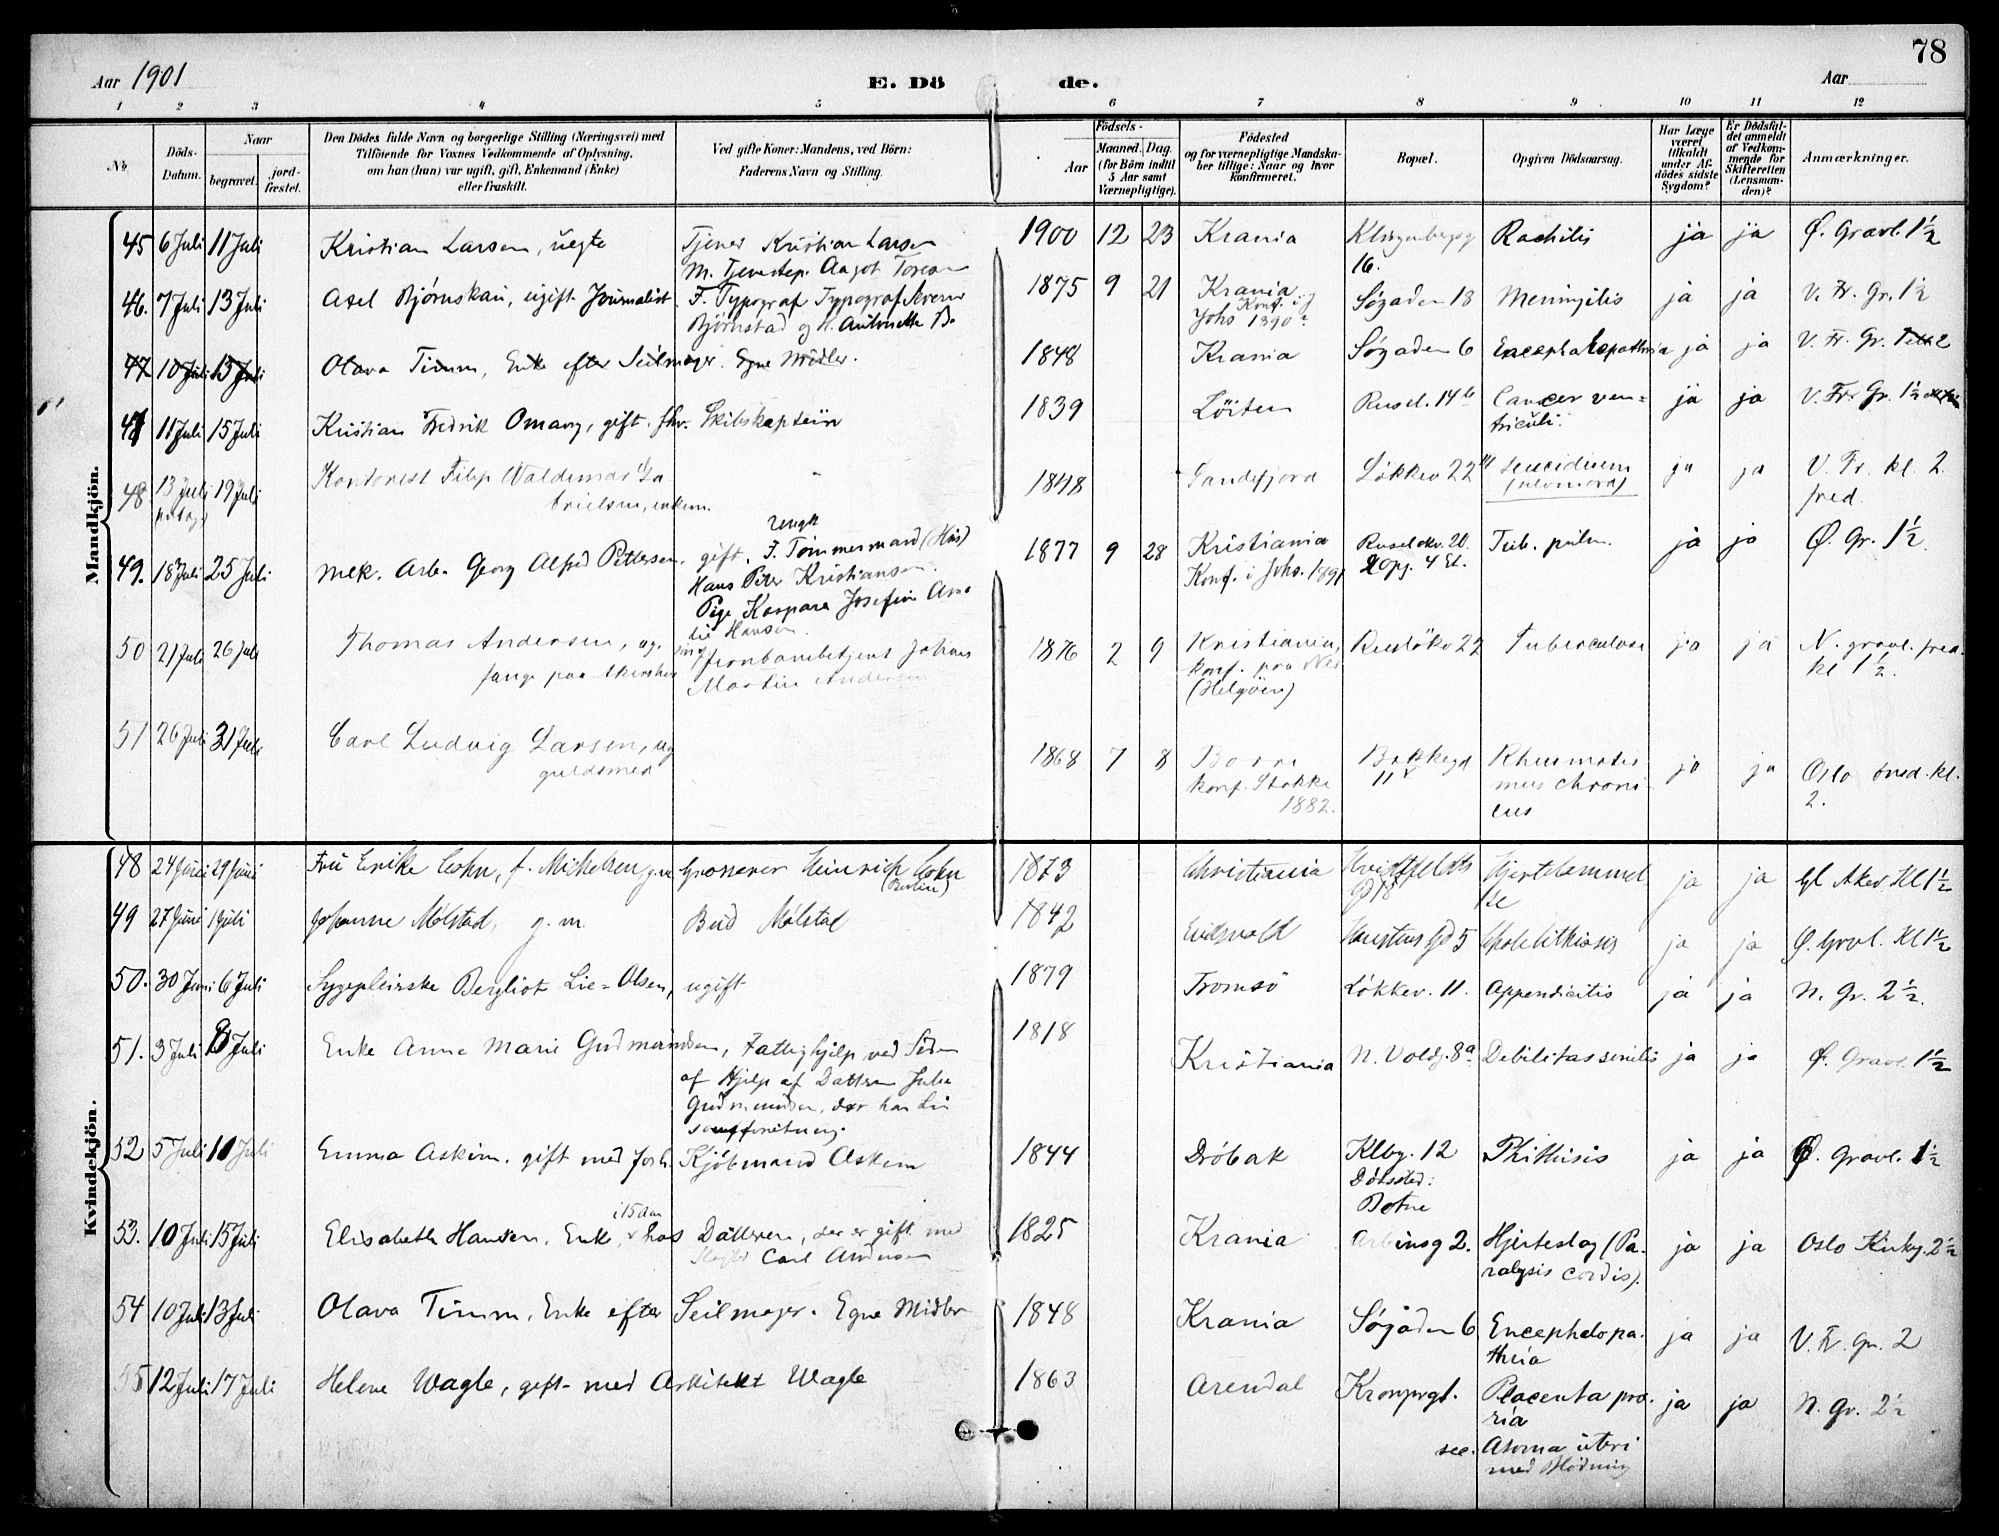 78
Aar 1901
E. Dö de.
Aar
1 2 3 4 5 6 7 8 9 10 11 12
No.
Döds-Datum.
Naar begravet. jord-fæstet.
Den Dödes fulde Navn og borgerlige Stilling (Næringsvei) med Tilföiende for Voxnes Vedkommende af Oplysning, om han (hun) var ugift, gift, Enkemand (Enke) eller fraskilt.
Ved gifte Koner: Mandens, ved Börn: Faderens Navn og Stilling.
Födsels- Aar Maaned. Dag. (for Börn indtil 5 Aar samt Værnepligtige).
Födested og for værnepligtige Mandska-ber tillige: Naar og hvor konfirmeret.
Bopæl.
Opgiven Dödsaarsag.
Har Læge været tilkaldt under Af-dödes sidste Sygdom?
Er Dödsfal-det anmeldt af Vedkom-mende for Skifteretten (Lensman-den)?
Anmærkninger.
Mandkjön.
45 6 Juli 11 Juli Kristian Larsen, uegte Tjener Kristian Larsen 1900 12 23 Krania Klingenbergg Rachitis ja ja Ø. Gravl. 1½
M. Tjenestep. Aagot 16.
46. 7 Juli 13 Juli Axel Bjørnskau, ugift Journalist. F. Typograf Typograf 1875 9 21 Krania Søgaden 18 Meningitis ja ja V. Fr. Gr. 1½
Bjørnstad og H. Antonette B. Konf. i Johs 1890
47 10 Juli 13 Juli Olava Timm, Enke efter Seilmager. Egne Midler. 1848 Krania Søgaden 6 Encephalopathria ja ja V. Fr. Gr. 2
47 11 Juli 15 Juli Kristian Fredrik Omang, gift. fhv. Skibskaptein 1839 Löiten Rusel. 14b Cancer ven-triculi. ja ja V. Fr. Gr. 1½
48. 13 Juli 19 Juli Kontorist Filip Waldemar Ga 1848 Sandefjord Løkkev 22 suicidium ja ja V. Fr. kl. 2.
brielsen, enkem. (selvmord) fred.
49. 18 Juli 25 Juli Mek. Arb. Georg Alfred Pettersen, gift. uegte F. Tømmermand 1877 9 28 Kristiania 20. Tub. pulm. ja ja Ø. Gr. 1½
Hans Peter Kristiansen. Konf. i Johs. 189 Opg. 4 Et.
Pige Kaspara Josefine Ama
lie Hansen.
50 21 Juli 26 Juli Thomas Andersen, ug. Jernbanebetjent Johan 1876 2 9 Kristiania, Rusløkv 22 Tuberculose ja ja N. gravl. fred.
fange paa Akershus Martin Andersen konf. paa Nes (Helgöen) kl 1½.
51 26 Juli 31 Juli Carl Ludvig Larsen, ug 1868 7 8 Borre Bakkegd Rheumatis ja ja Oslo fred. kl.
guldsmed konf. Stokke 11 mus chroni 2.
1882. cus
Kvindekjön.
48 24 Juni 29 Juni Fru Enike Cohn, f. Mickelsen g.m. Grosserer Heinrich Cohn 1873 Christiania Hjertelammel ja ja Gl Aker. Kl 1½
(Berlin) se
49 27 Juni 1 Juli Johanne Mølstad, g. m. Bud Mølstad 1842 Eidsvold Gd 5 Cholelithiasis ja ja Ø. Gravl. Kl 1½
50. 30 Juni 6 Juli Sygepleierske Bergliot Lie-Olsen, ugift 1879 Tromsö Løkkev. 11. Appendicitis ja ja N. Gr. 2½.
51. 3 Juli 8 Juli Enke Anne Marie Gudmundsen, Fattighjelp ved Siden 1818 Kristiania N. Voldg. 8a Debilitas senilis ja ja Ø. Gravl. 1½
af Hjelp af Datteren Julie
Gudmundsen, der har Lin
sømforretning.
52 5 Juli 10 Juli Emma Askim. gift med Kjöbmand Askim 1844 Dröbak Klbg. 12 Phthisis ja ja Ø. Gravl. 1½
Dödssted: Botne
53. 10 Juli 15 Juli Elisabeth Hansen. Enke i 15 Aar hos Datteren, der er gift med 1825 Krania Arbinsg 2. Hjerteslag (Pa-ralysis cordis). ja ja Oslo Kirkeg. 2½
Carl Andersen
54 10 Juli 13 Juli Olava Timm, Enke efter Seilmager. Egne Midler 1848 Krania Søgaden 6 Encephalopa-thria ja ja V. Fr. Gr. 2
55 12 Juli 17 Juli Helene Wagle, gift med Arkitekt Wagle 1863 Arendal Kronprgt. Placenta præ-via ja ja N. Gr. 2½
sec. Atoma uteri
med Blødning